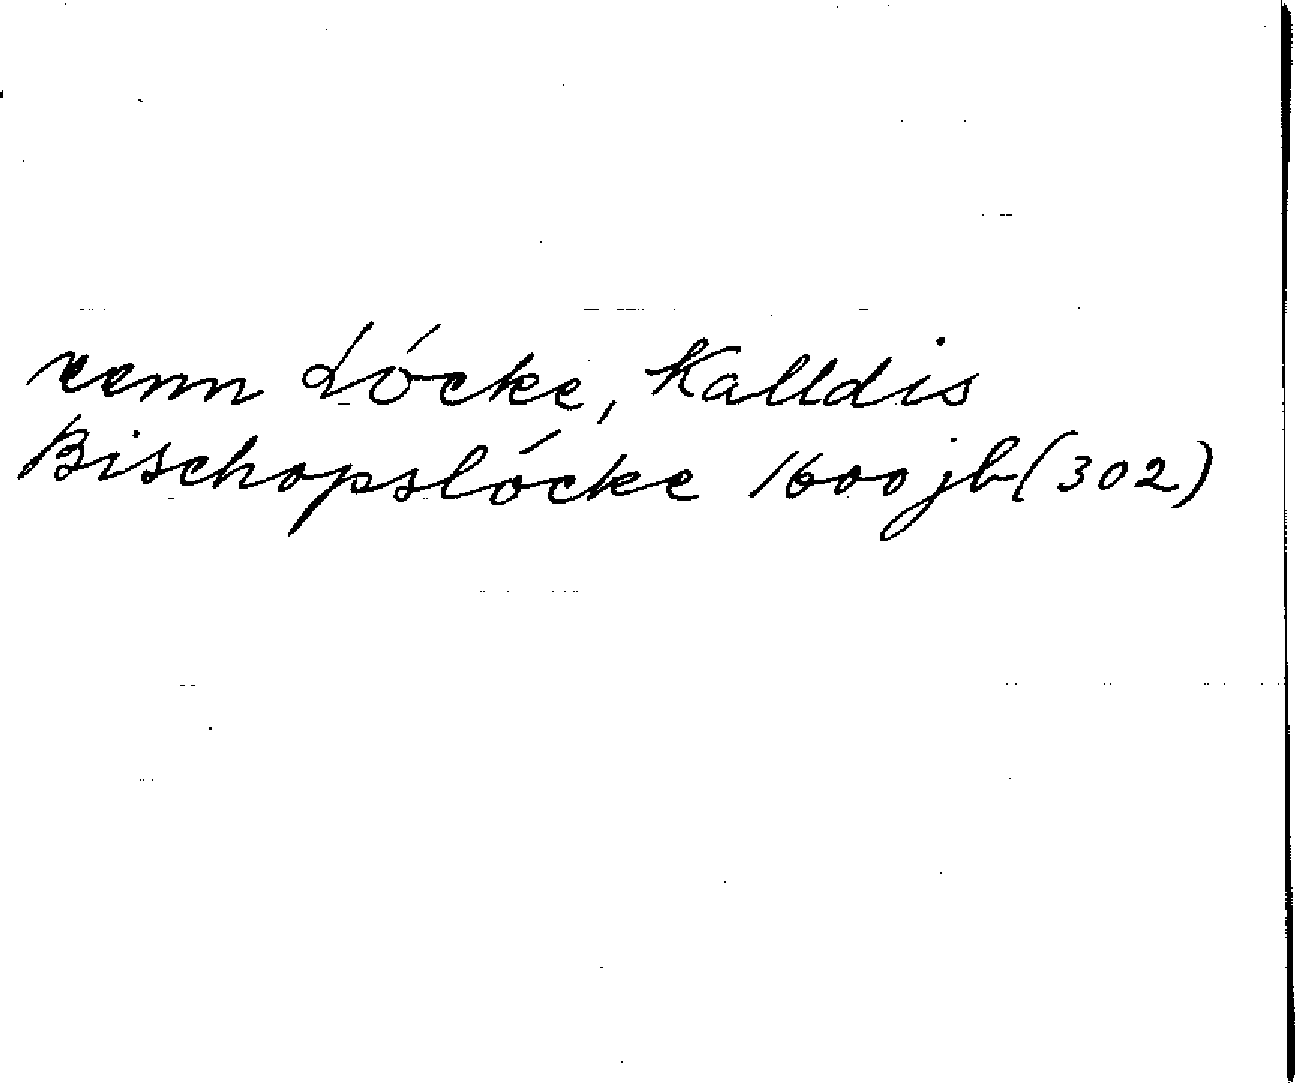 Lócke, Kalldis
Bischopslócke 1600 jb (302)